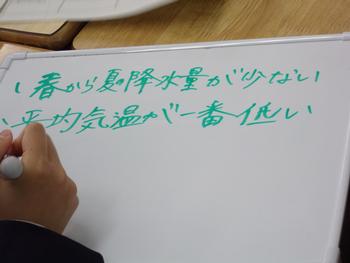 春から夏の降水量が少ない
平均気温が一番低い